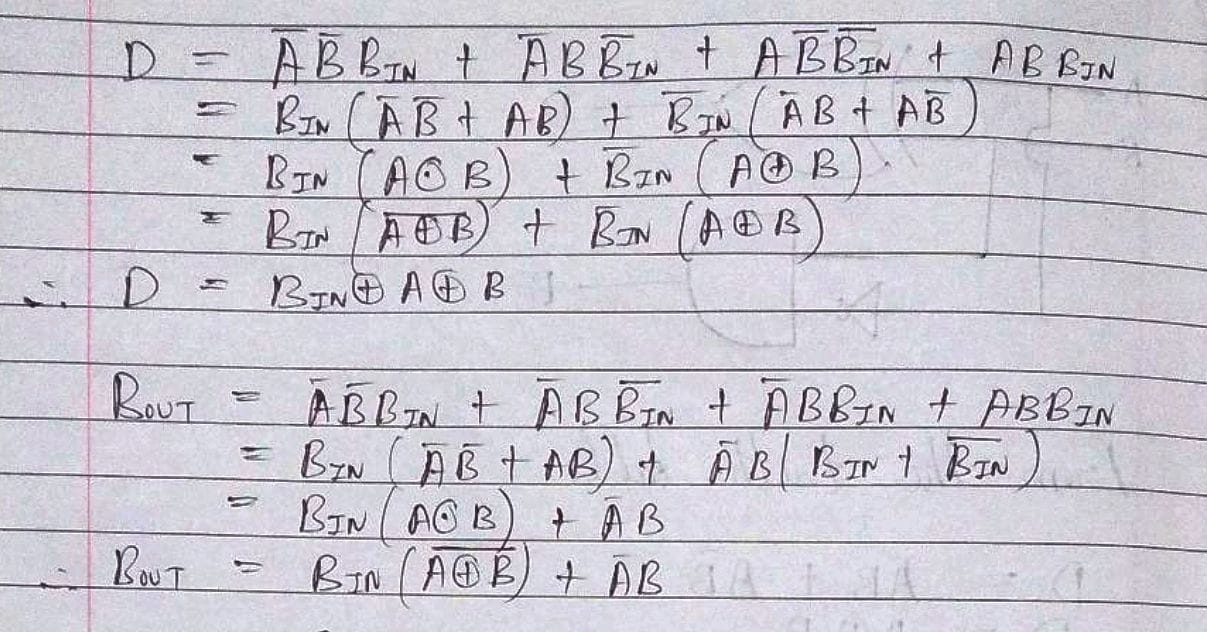 D = A̅ B̅ B_IN + A̅ B B̅_IN + A B̅ B̅_IN + A B B_IN
= B_IN ( A̅ B̅ + AB ) + B̅_IN ( A̅ B + A B̅ )
= B_IN ( A ⊙ B ) + B̅_IN ( A ⊕ B )
= B_IN ( \overline{A ⊕ B} ) + B̅_IN ( A ⊕ B )
∴ D = B_IN ⊕ A ⊕ B
B_OUT = A̅ B̅ B_IN + A̅ B B̅_IN + A̅ B B_IN + A B B_IN
= B_IN ( A̅ B̅ + AB ) + A̅ B ( B_IN + B̅_IN )
= B_IN ( A ⊙ B ) + A̅ B
∴ B_OUT = B_IN ( \overline{A ⊕ B} ) + A̅ B